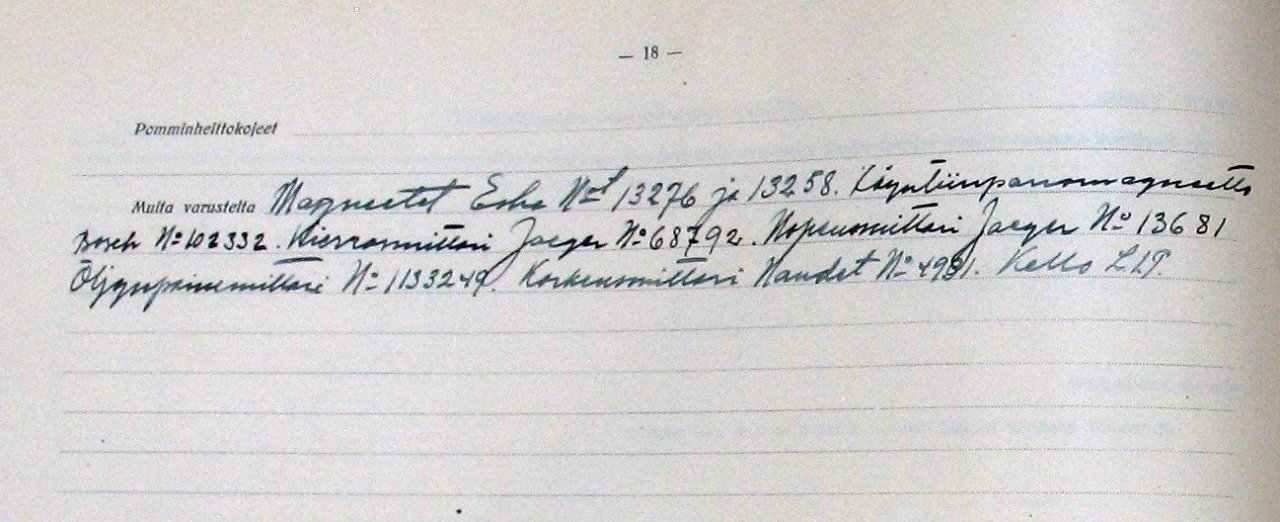 — 18 —
Pomminheittokojeet
Muita varusteita Magneetot Esha Not 13276 ja 13258. Käyntiinpanomagneetto
Bosch No 102332. Kierrosmittari Jaeger No 68792. Nopeusmittari Jaeger No 13681
Öljynpainemittari No 1133249. Korkeusmittari Naudet No 4931. Kello L.LT.